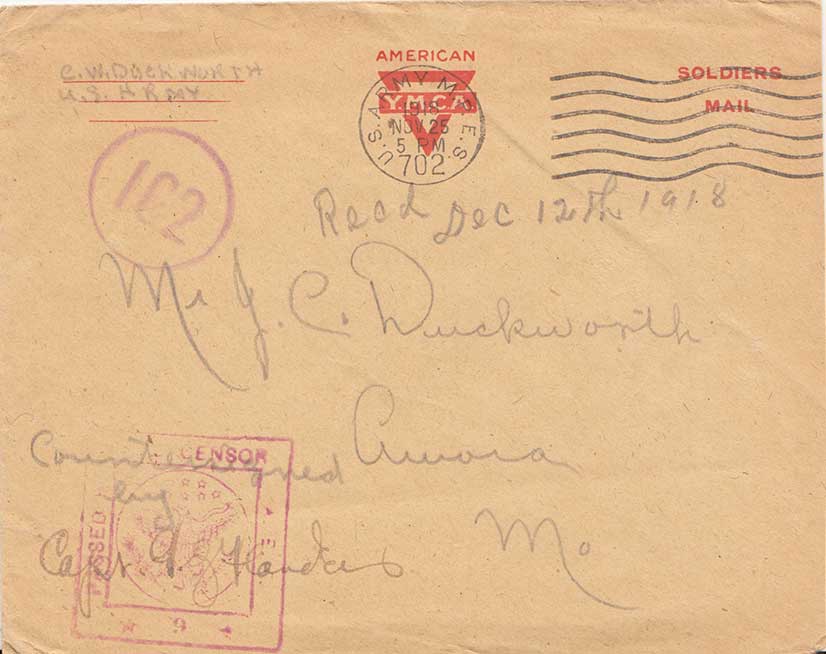 C. W. DUCKWORTH
U.S. ARMY
AMERICAN
YMCA
U.S. ARMY M.P.E.S.
1918
NOV 25
5 PM
702
SOLDIERS
MAIL
102
Recd Dec 12th 1918
Mr J. C. Duckworth
Aurora
Mo
Countersigned
by
Capt
PASSED
CENSOR
9